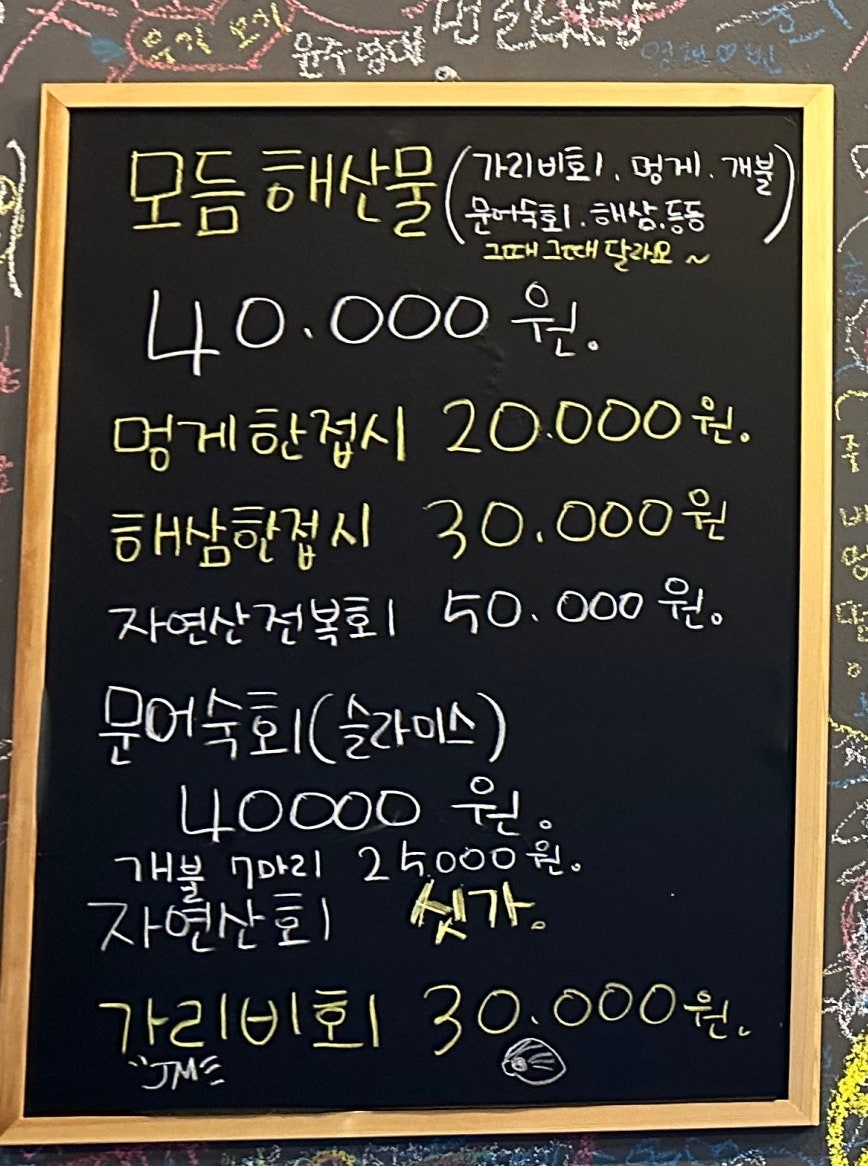 윤주명대
모듬 해산물 (가리비회, 멍게. 개불
문어숙회. 해삼.등등)
그때 그때 달라요 ~
40.000 원.
멍게 한접시 20.000 원.
해삼한접시 30.000 원
자연산 전복회 50.000 원.
문어숙회(슬라이스)
40000 원.
개불 7마리 25.000 원.
자연산회 싯가.
가리비회 30.000 원.
"JM